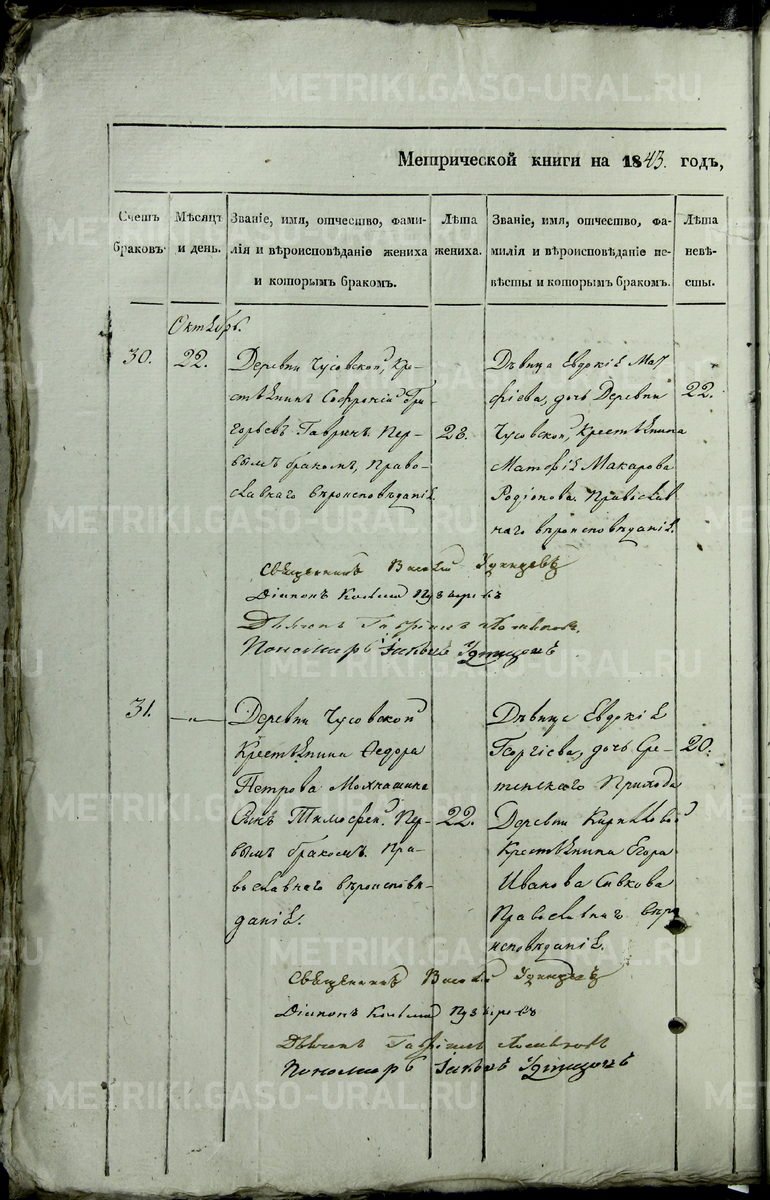 METRIKI.GASO-URAL.RU
Метрической книги на 1843. годъ,
Счетъ браковъ.
Мѣсяцъ и день.
Званіе, имя, отчество, фами-
лія и вѣроисповѣданіе жениха
и которымъ бракомъ.
Лѣта
жениха.
Званіе, имя, отчество, фа-
милія и вѣроисповѣданіе не-
вѣсты и которымъ бракомъ.
Лѣта
невѣ-
сты.
Октябрь.
30.
22.
Деревни Чусовской, Кре-
стьянинъ Софроній Гри-
горьевъ Гавринъ. Пер-
вымъ бракомъ, Право-
славнаго вѣроисповѣданія.
23.
Дѣвица Евдокія Мат-
фіева, дочь Деревни
Чусовской, Крестьянина
Матфія Макарова
Родіонова. Православ-
наго вѣроисповѣданія.
22.
Священникъ Василій Удинцевъ
Діаконъ Козьма
Дьячекъ Гавріилъ
Пономарь Удинцовъ
31.
—"—
Деревни Чусовской
Крестьянина Федора
Петрова
Сынъ Тимофей. Пер-
вымъ бракомъ. Пра-
вославнаго вѣроисповѣ-
данія.
22.
Дѣвица Евдокія
Георгіева, дочь Сре-
тенскаго Прихода
Деревни
Крестьянина Егора
Иванова Сивкова
Православнаго вѣро
исповѣданія.
20.
Священникъ Василій Удинцевъ
Діаконъ Козьма
Дьячекъ Гавріилъ
Пономарь Удинцовъ